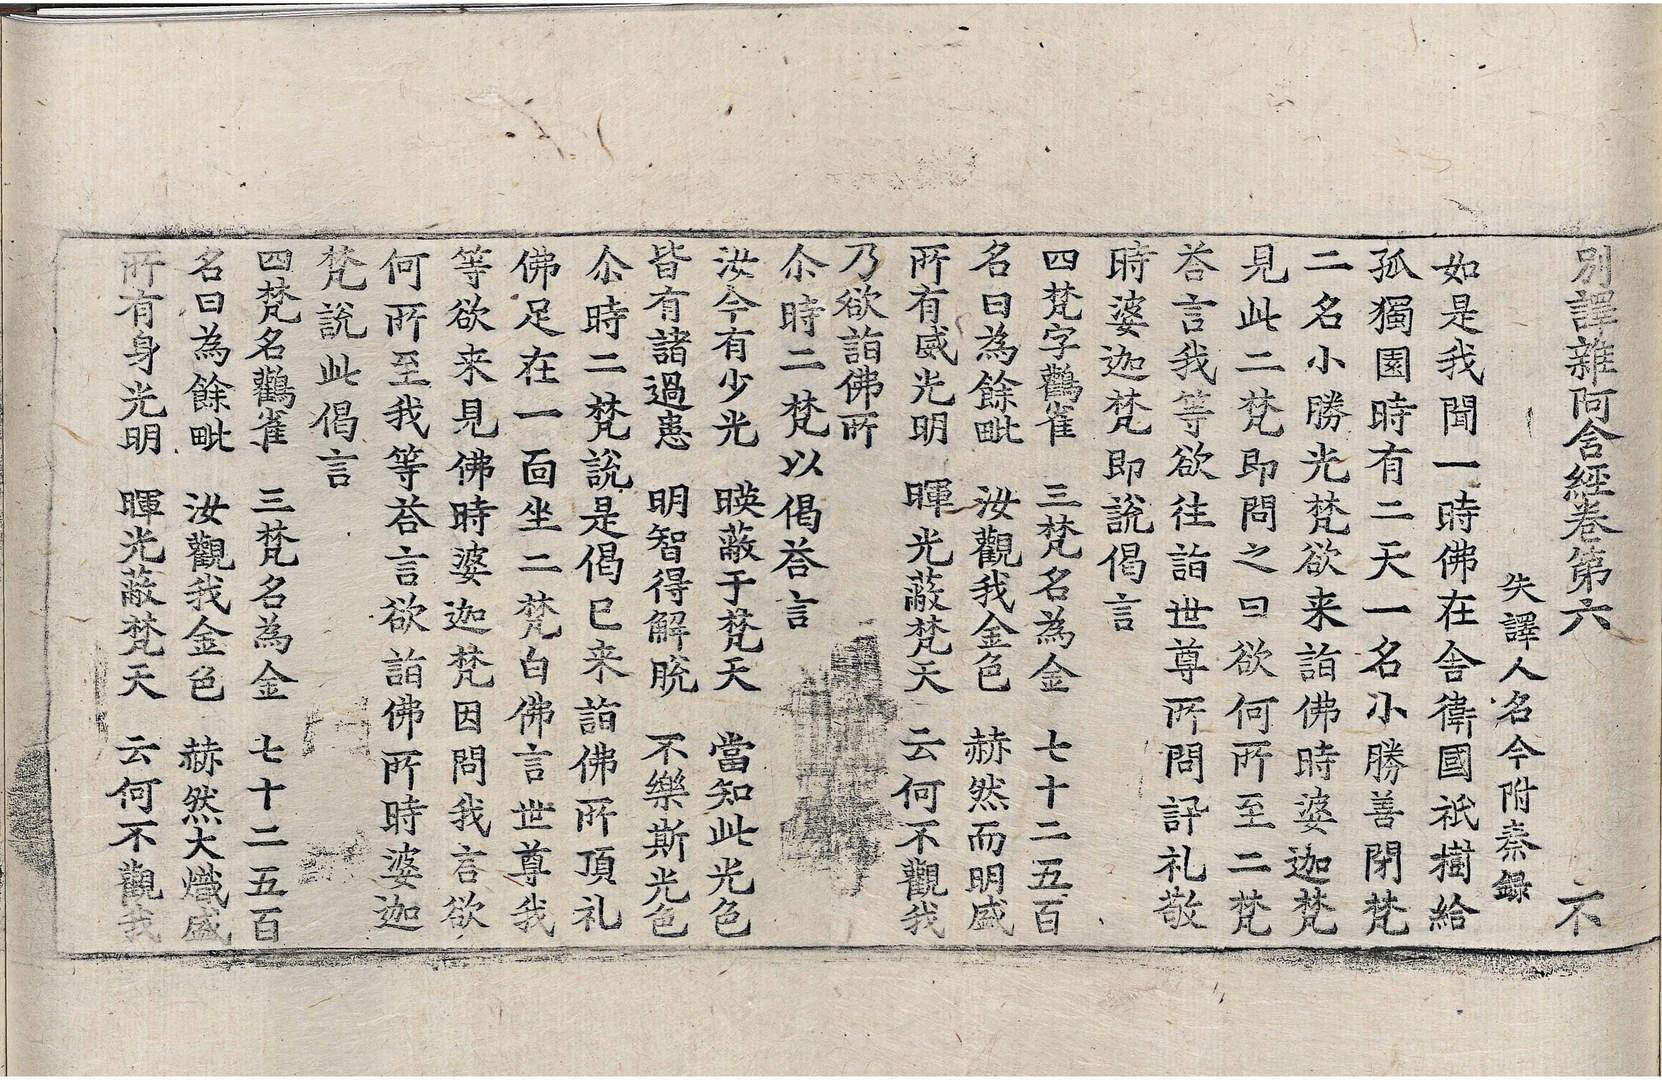 別譯雜阿含經卷第六　不
失譯人名今附秦録
如是我聞一時佛在舎衛國祇樹給
孤獨園時有二天一名小勝善閇梵
二名小勝光梵欲来詣佛時婆迦梵
見此二梵即問之曰欲何所至二梵
荅言我等欲往詣世尊所問訊礼敬
時婆迦梵即說偈言
四梵字鸛雀　三梵名為金　七十二五百
名曰為餘毗　汝觀我金色　赫然而明盛
所有威光明　暉光蔽梵天　云何不觀我
乃欲詣佛所
尒時二梵以偈荅言
汝今有少光　暎蔽于梵天　當知此光色
皆有諸過患　明智得解脫　不樂斯光色
尒時二梵說是偈已来詣佛所頂礼
佛足在一面坐二梵白佛言世尊我
等欲来見佛時婆迦梵因問我言欲
何所至我等荅言欲詣佛所時婆迦
梵說此偈言
四梵名鸛雀　三梵名為金　七十二五百
名曰為餘毗　汝觀我金色　赫然大熾盛
所有身光明　暉光蔽梵天　云何不觀我